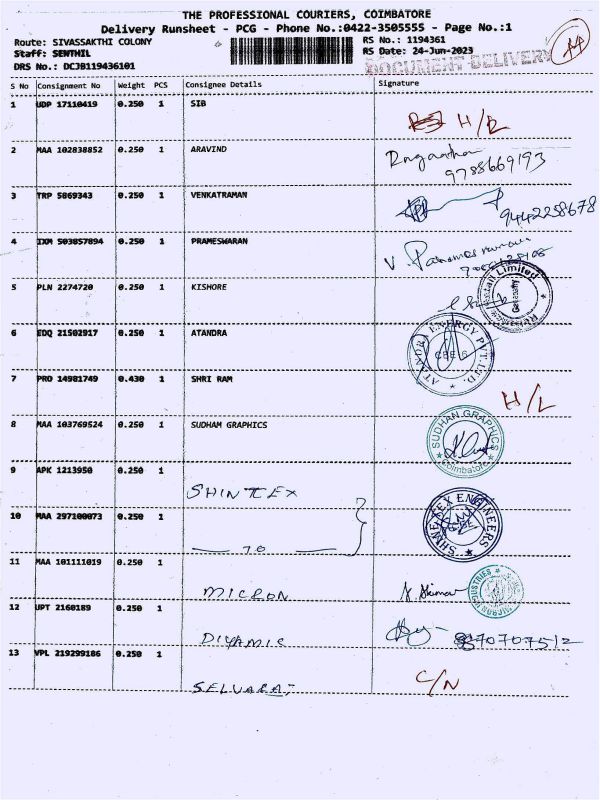 THE PROFESSIONAL COURIERS, COIMBATORE
Delivery Runsheet - PCG - Phone No.:0422-3505555 - Page No.:1
Route: SIVASSAKTHI COLONY RS No.: 1194361
Staff: SENTHIL RS Date: 24-Jun-2023
DRS No.: DCJB119436101 DOCUMENT DELIVERY
S No Consignment No Weight PCS Consignee Details Signature
1 UDP 17110419 0.250 1 SIB
H/L
2 MAA 102838852 0.250 1 ARAVIND
9788669193
3 TRP 5869343 0.250 1 VENKATRAMAN
9442258678
4 IXM 503857894 0.250 1 PRAMESWARAN
V.
5 PLN 2274720 0.250 1 KISHORE
Limited
6 EDQ 21502917 0.250 1 ATANDRA
ATANDRA ENERGY PVT.LTD.
CBE-6
7 PRO 14981749 0.430 1 SHRI RAM
H/L
8 MAA 103769524 0.250 1 SUDHAM GRAPHICS
SUDHAN GRAPHICS
Coimbatore
9 APK 1213950 0.250 1
SHINTEX
10 MAA 297100073 0.250 1
ENGINEERS
CBE
11 MAA 101111019 0.250 1
MICRON
MICRON INDUSTRIES
12 UPT 2160189 0.250 1
DIYAMIC
13 VPL 219299186 0.250 1
SELVARAJ
C/N